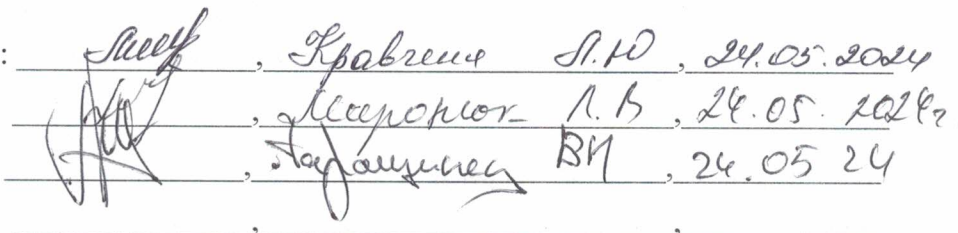 : , Кравченя Л.Ю , 24.05.2024
, Миронюк Л.В , 24.05.2024г
, Таращинец ВИ , 24.05 24
, ,